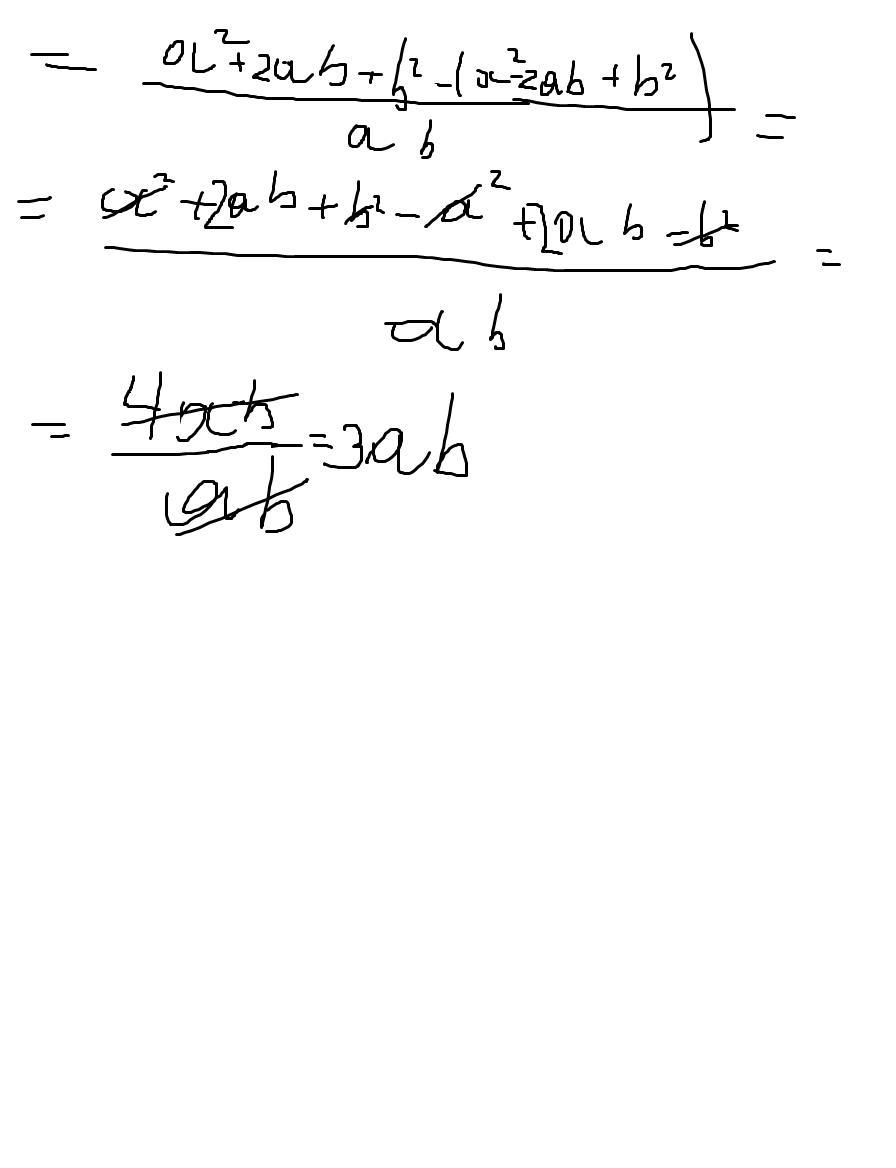 = (a²+2ab+b²-(a²-2ab+b²))/(ab) =
= (a²+2ab+b²-a²+2ab-b²)/(ab) =
= (4ab)/(ab) = 3ab